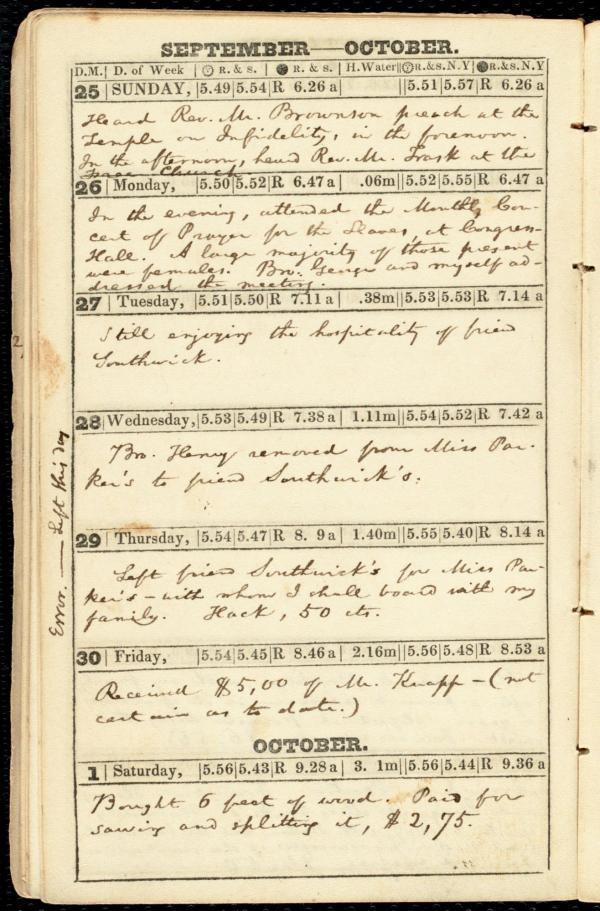 SEPTEMBER—OCTOBER.
D.M. | D. of Week | R. & s. | R. & s. | H.Water || R.&s.N.Y | R.&s.N.Y
25 | SUNDAY, | 5.49 | 5.54 | R 6.26 a | || 5.51 | 5.57 | R 6.26 a
Heard Rev. Mr. Brownson preach at the
Temple on Infidelity, in the forenoon.
In the afternoon, heard Rev. Mr. Trask at the
Free Church
26 | Monday, | 5.50 | 5.52 | R 6.47 a | .06m || 5.52 | 5.55 | R 6.47 a
In the evening, attended the Monthly Con-
cert of Prayer for the Slaves, at Congress
Hall. A large majority of those present
were females. Bro. George and myself ad-
dressed the meeting.
27 | Tuesday, | 5.51 | 5.50 | R 7.11 a | .38m || 5.53 | 5.53 | R 7.14 a
Still enjoying the hospitality of friend
Southwick.
28 | Wednesday, | 5.53 | 5.49 | R 7.38 a | 1.11m || 5.54 | 5.52 | R 7.42 a
Bro. Henry removed from Miss Par-
ker's to friend Southwick's.
Error. — Left this day
29 | Thursday, | 5.54 | 5.47 | R 8. 9 a | 1.40m || 5.55 | 5.40 | R 8.14 a
Left friend Southwick's for Miss Par-
ker's – with whom I shall board with my
family. Hack, 50 cts.
30 | Friday, | 5.54 | 5.45 | R 8.46 a | 2.16m || 5.56 | 5.48 | R 8.53 a
Received $5,00 of Mr. Knapp – (not
certain as to date.)
OCTOBER.
1 | Saturday, | 5.56 | 5.43 | R 9.28 a | 3. 1m || 5.56 | 5.44 | R 9.36 a
Bought 6 feet of wood. Paid for
sawing and splitting it, $2,75.